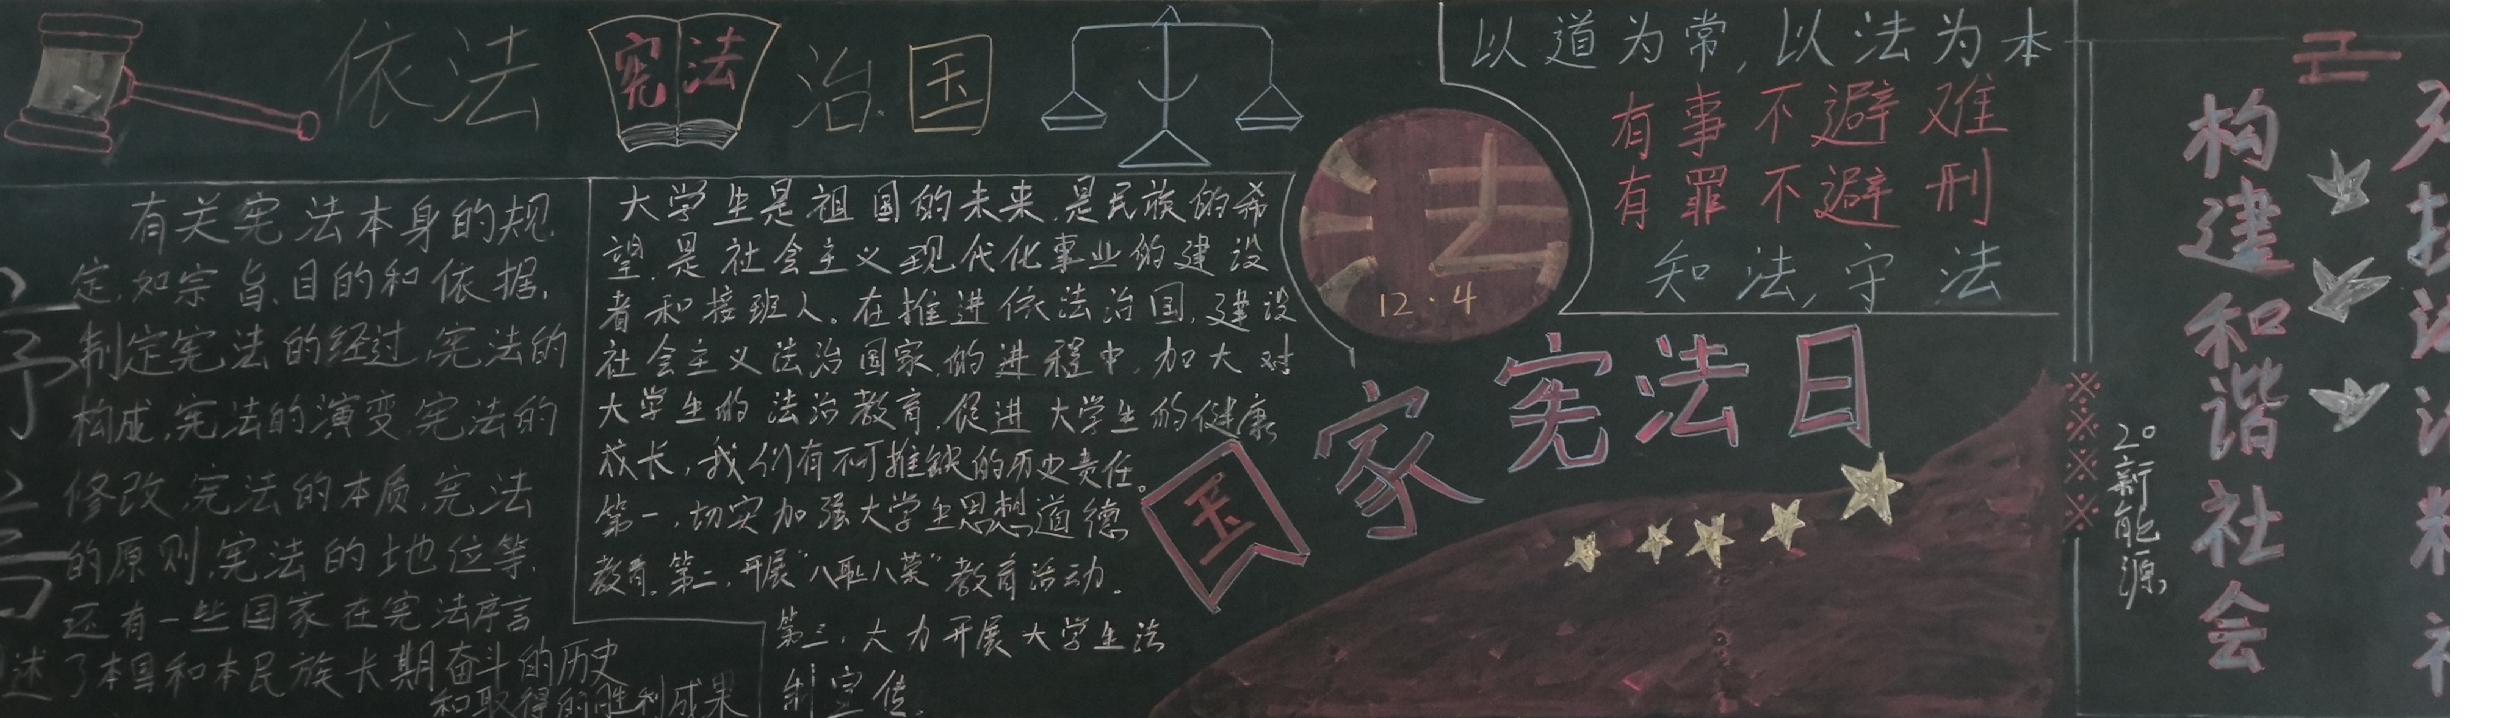 依法
宪法
治国
有关宪法本身的规
定,如宗旨、目的和依据,
制定宪法的经过,宪法的
构成,宪法的演变,宪法的
修改,宪法的本质,宪法
的原则,宪法的地位等,
还有一些国家在宪法序言
述了本国和本民族长期奋斗的历史
和取得的胜利成果
大学生是祖国的未来,是民族的希
望,是社会主义现代化事业的建设
者和接班人。在推进依法治国,建设
社会主义法治国家的进程中,加大对
大学生的法治教育,促进大学生的健康
成长,我们有不可推缺的历史责任。
第一,切实加强大学生思想道德
教育。第二,开展“八耻八荣”教育活动。
第三,大力开展大学生法
制宣传。
法
12·4
以道为常,以法为本
有事不避难
有罪不避刑
知法,守法
国家宪法日
20新能源
构建和谐社会